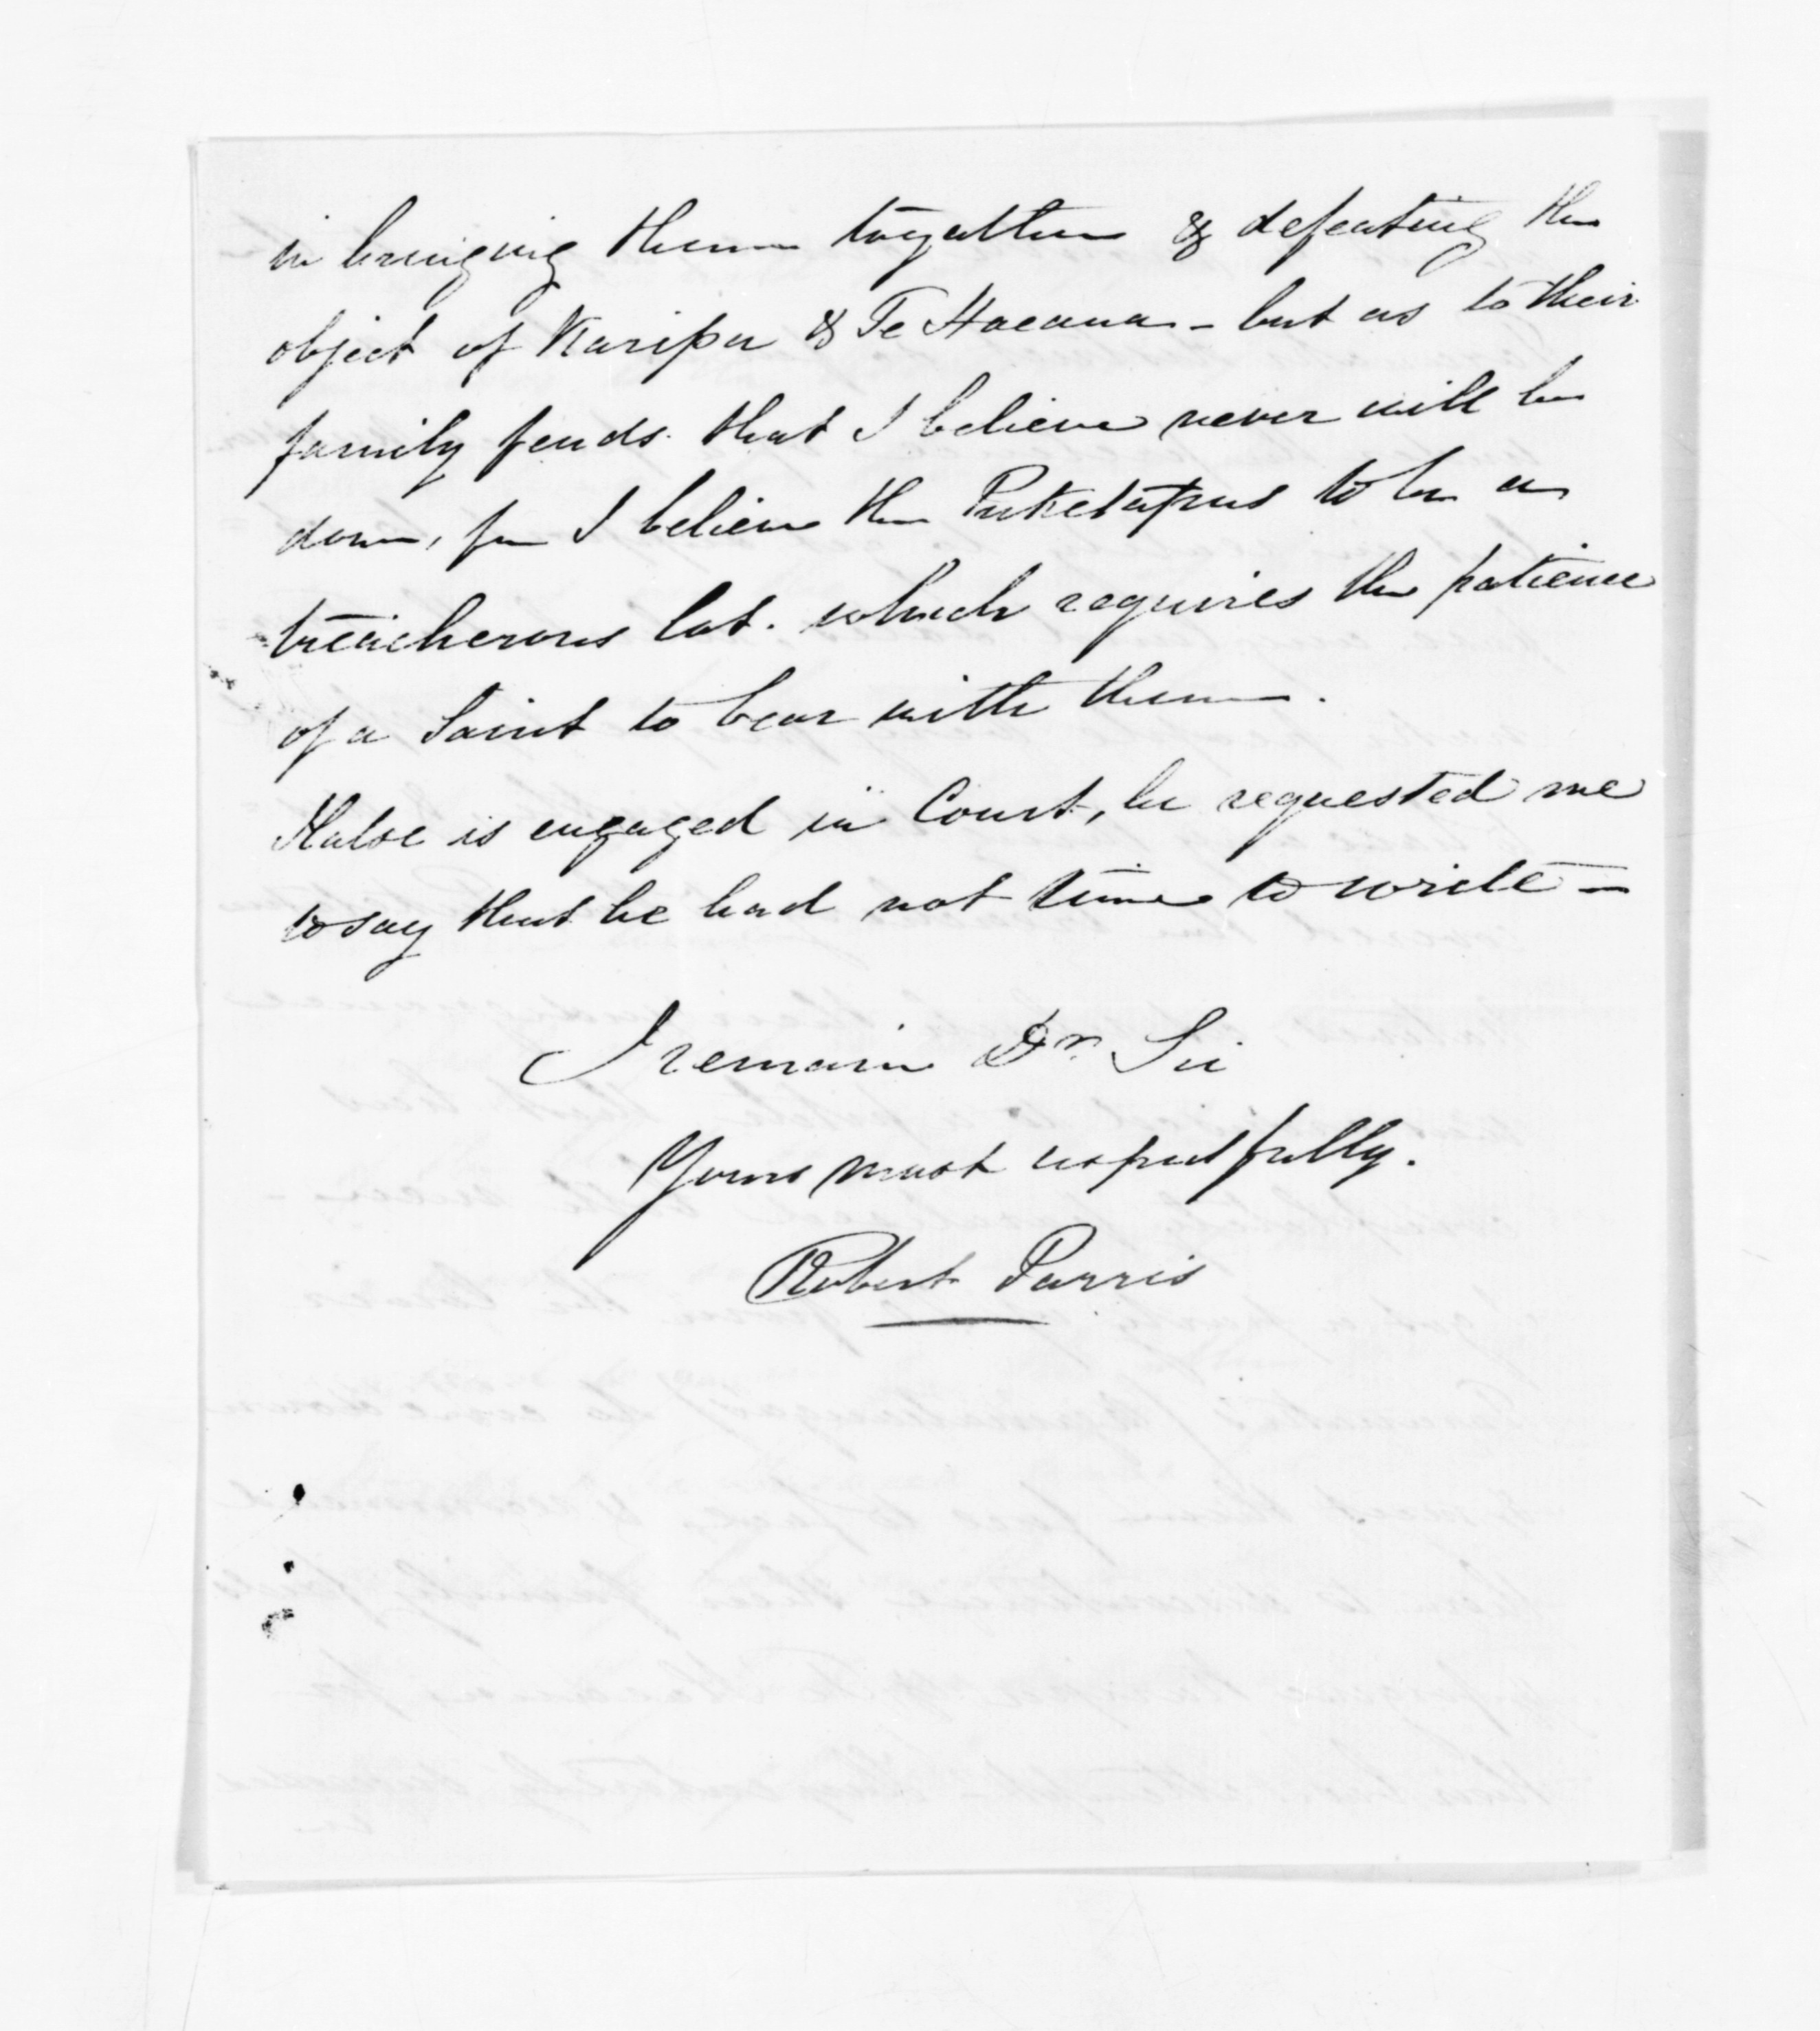 in bringing them together & defeating the
object of Karipa & Te Haeana - but as to their
family feuds. that I believe never will be
done, for I believe the Puketapus to be a
treacherous lot. which requires the patience
of a Saint to bear with them.
Halse is engaged in Court, he requested me
to say that he had not time to write -
I remain Dr. Sir
Yours most respectfully.
Robert Parris